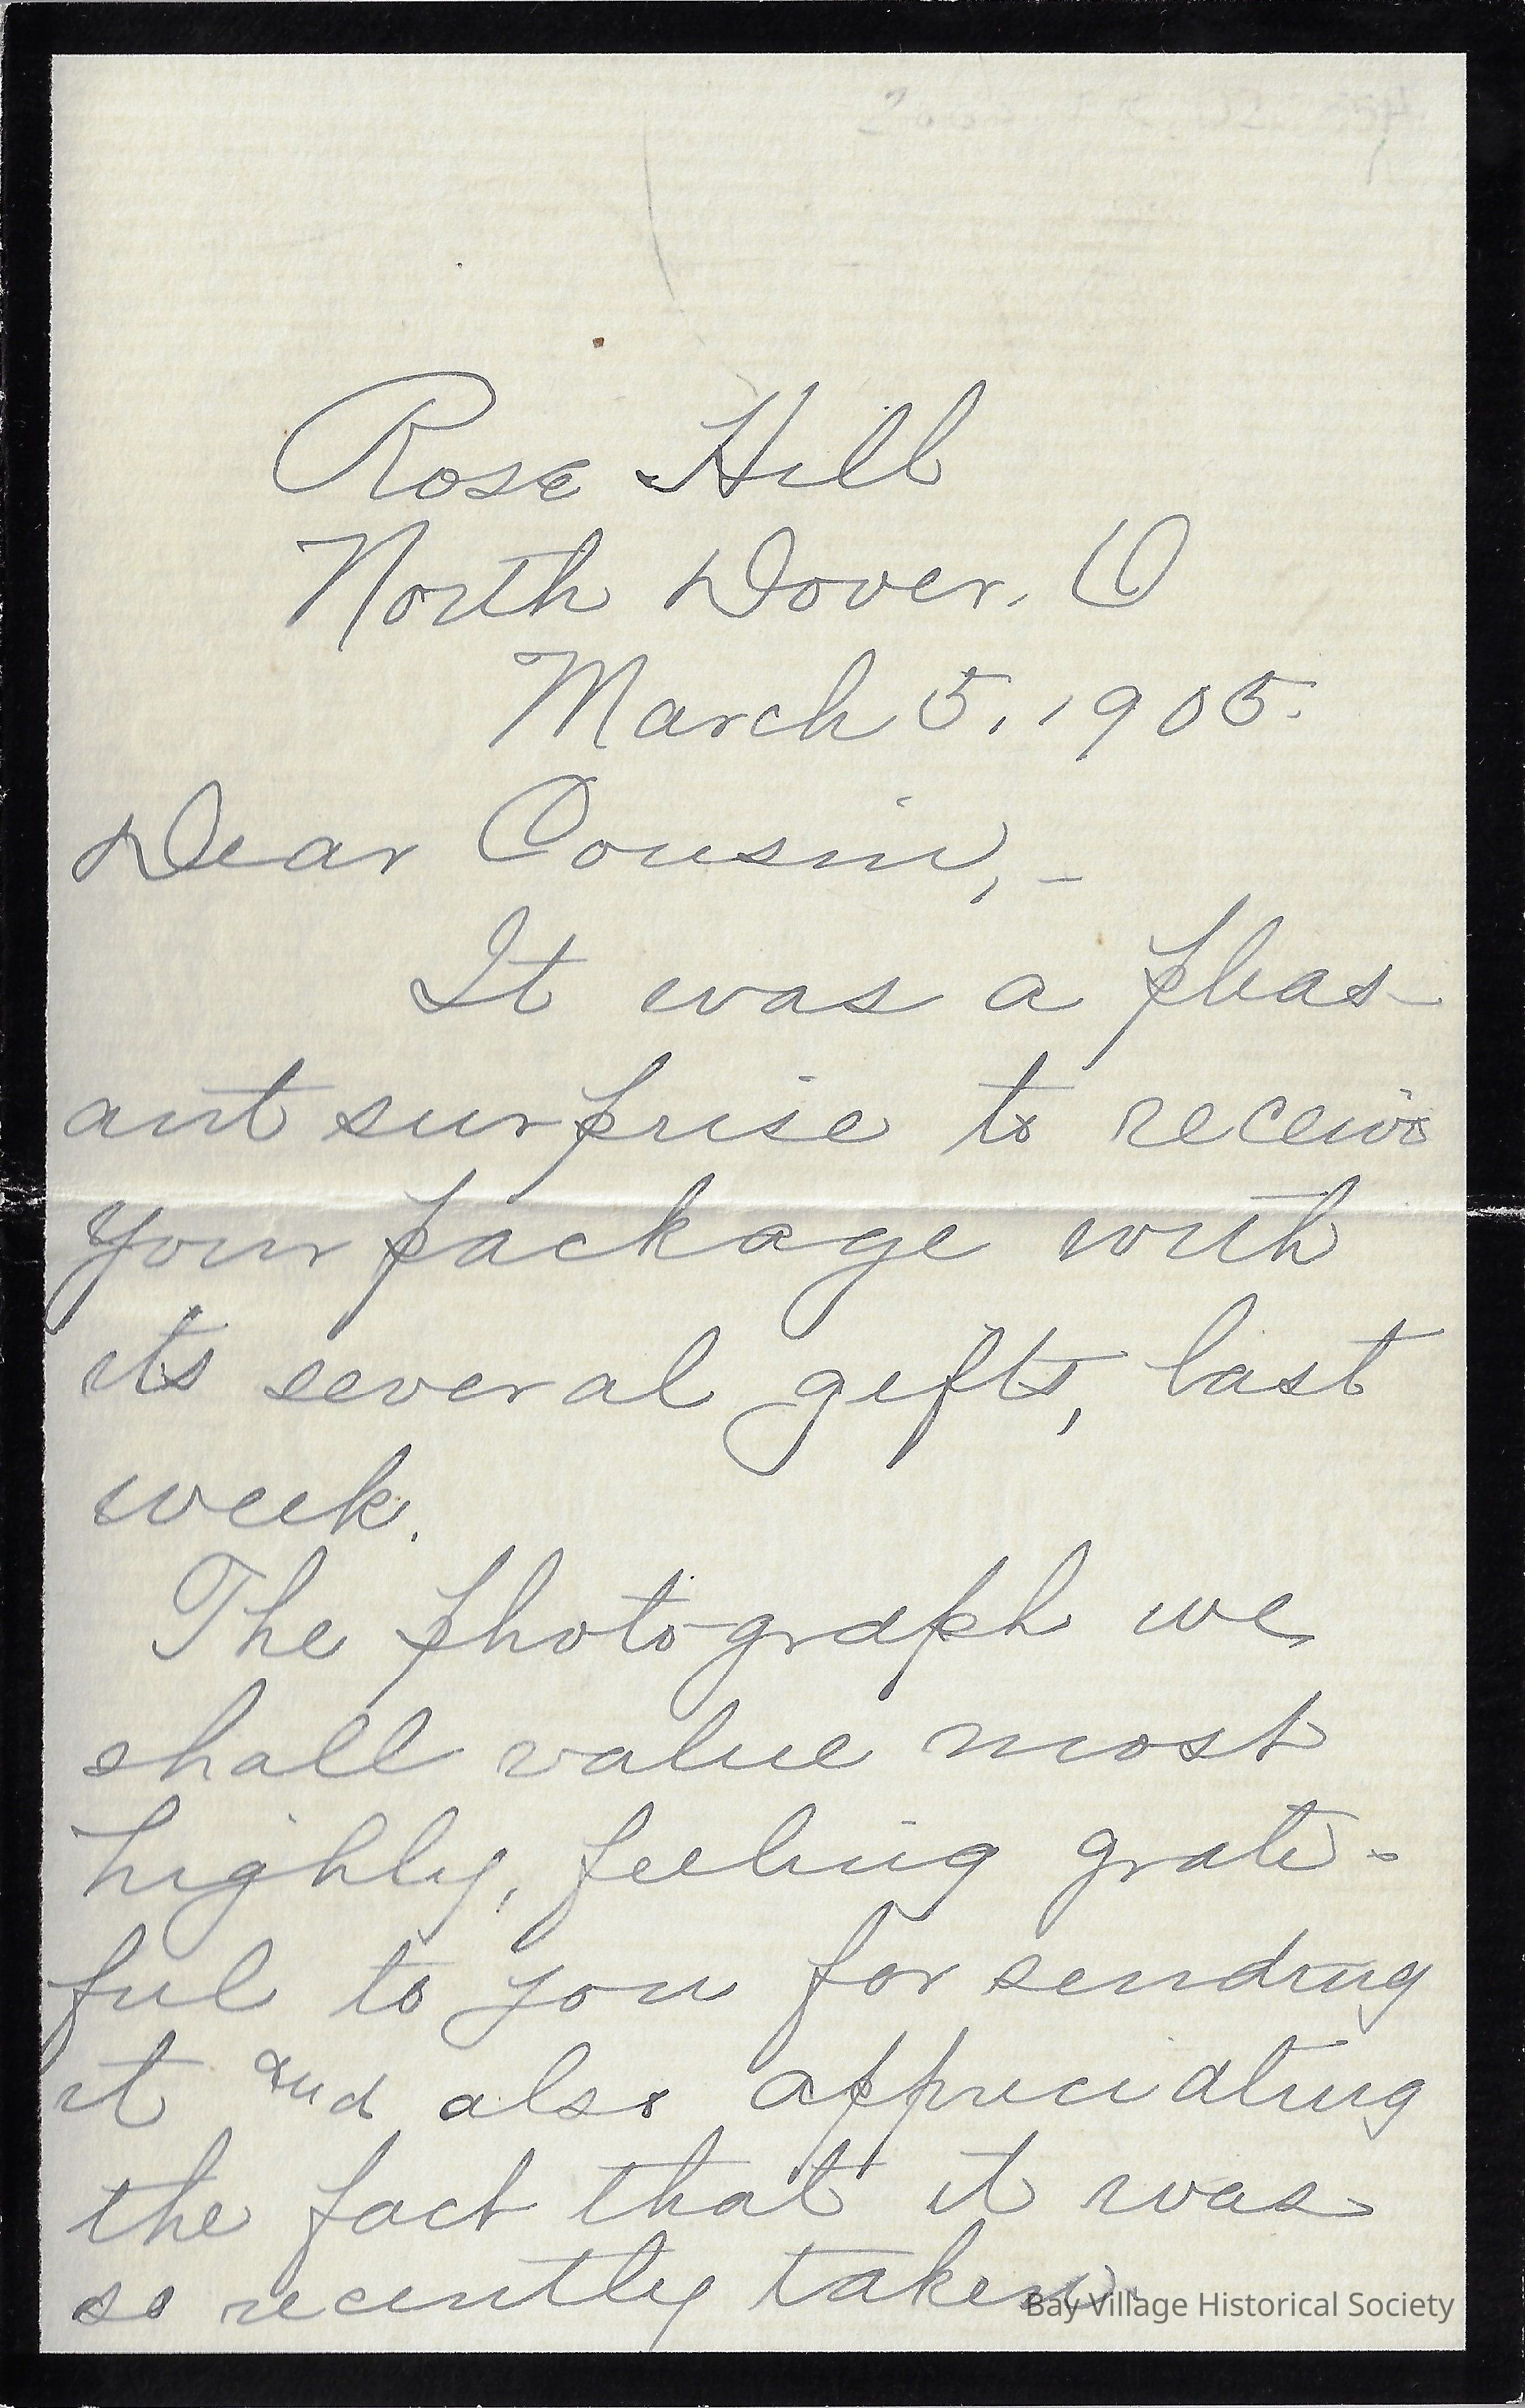 Rose Hill
North Dover, O
March 5, 1905.
Dear Cousin, -
It was a pleas-
ant surprise to receive
your package with
its several gifts, last
week.
The photograph we
shall value most
highly, feeling grate-
ful to you for sending
it and also appreciating
the fact that it was
so recently taken.
Bay Village Historical Society